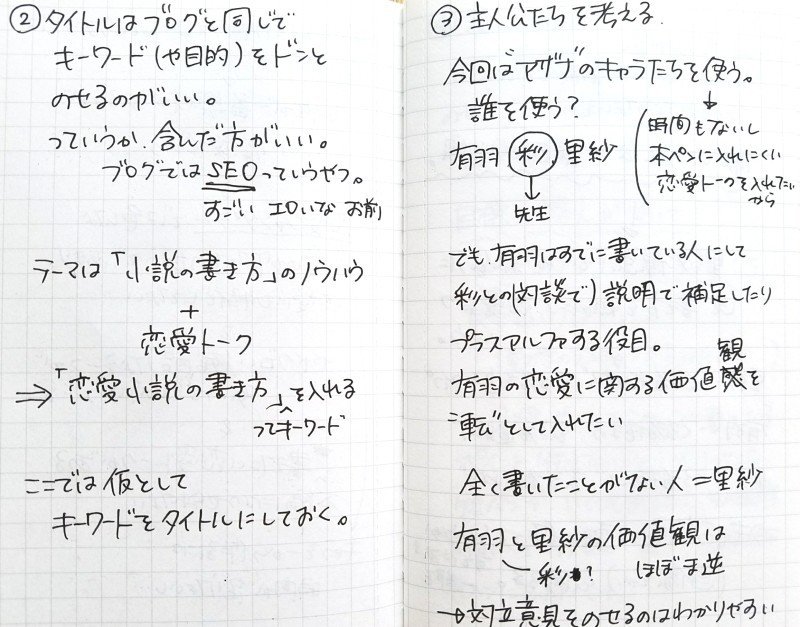 ② タイトルはブログと同じで
キーワード(や目的)をドンと
のせるのがいい。
っていうか、含んだ方がいい。
ブログではSEOっていうやつ。
すごい エロいな お前
テーマは「小説の書き方」のノウハウ
+
恋愛トーク
⇒「恋愛小説の書き方」を入れる
ってキーワード
ここでは仮として
キーワードをタイトルにしておく。
③ 主人公たちを考える。
今回は のキャラたちを使う。
誰を使う?
有羽 彩 里紗
↓
先生
時間もないし
本ペンに入れにくい
恋愛トークを入れたい
から
でも、有羽はすでに書いている人にして
彩との(対談で)説明で補足したり
プラスアルファする役目。
有羽の恋愛に関する価値観を
"転"として入れたい
全く書いたことがない人=里紗
有羽と里紗の価値観は
彩? ほぼま逆
→対立意見をのせるのはわかりやすい